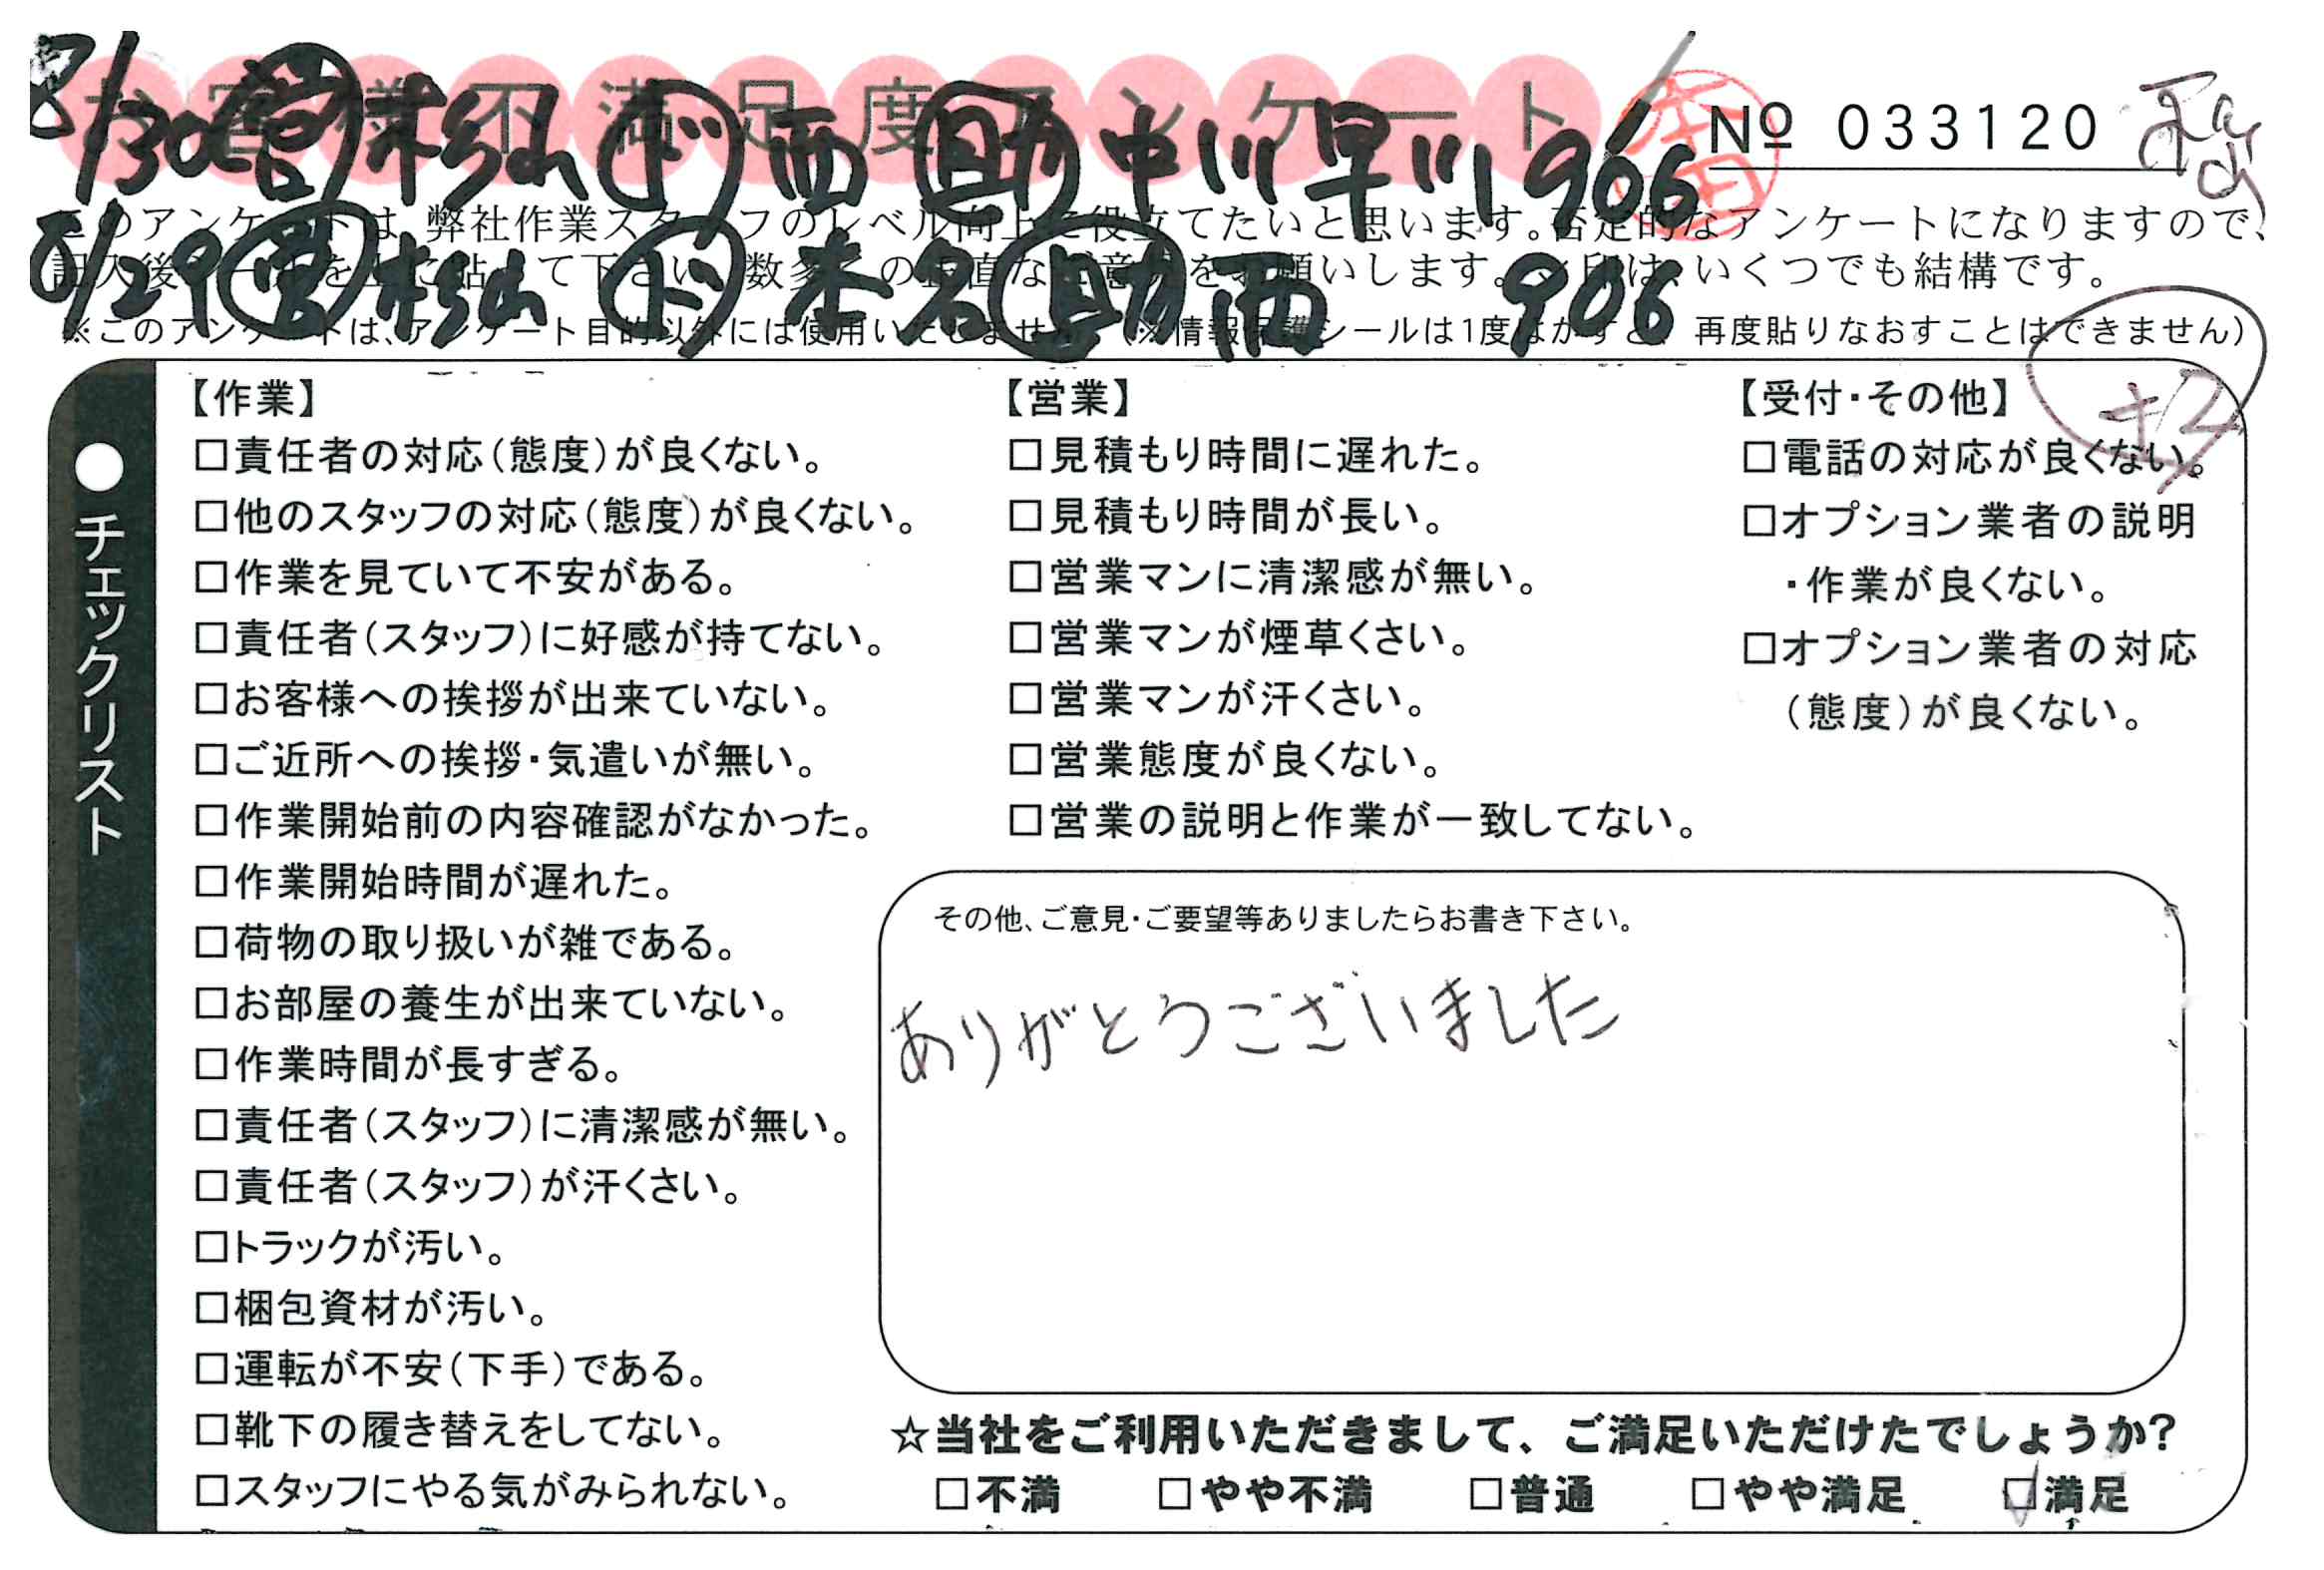 お客様不満足度アンケート
8/30 営 杉山 ド 西 助 中川 早川 906
本田
No 033120
このアンケートは、弊社作業スタッフのレベル向上に役立てたいと思います。否定的なアンケートになりますので、
8/29 営 杉山 ド 本名 助 西 906
いくつでも結構です。
※このアンケートは、アンケート目的以外には使用いたしません。(※情報保護シールは1度はがすと、再度貼りなおすことはできません)
●チェックリスト
【作業】
□責任者の対応(態度)が良くない。
□他のスタッフの対応(態度)が良くない。
□作業を見ていて不安がある。
□責任者(スタッフ)に好感が持てない。
□お客様への挨拶が出来ていない。
□ご近所への挨拶・気遣いが無い。
□作業開始前の内容確認がなかった。
□作業開始時間が遅れた。
□荷物の取り扱いが雑である。
□お部屋の養生が出来ていない。
□作業時間が長すぎる。
□責任者(スタッフ)に清潔感が無い。
□責任者(スタッフ)が汗くさい。
□トラックが汚い。
□梱包資材が汚い。
□運転が不安(下手)である。
□靴下の履き替えをしてない。
□スタッフにやる気がみられない。
【営業】
□見積もり時間に遅れた。
□見積もり時間が長い。
□営業マンに清潔感が無い。
□営業マンが煙草くさい。
□営業マンが汗くさい。
□営業態度が良くない。
□営業の説明と作業が一致してない。
【受付・その他】
□電話の対応が良くない。
□オプション業者の説明
・作業が良くない。
□オプション業者の対応
(態度)が良くない。
その他、ご意見・ご要望等ありましたらお書き下さい。
ありがとうございました
☆当社をご利用いただきまして、ご満足いただけたでしょうか?
□不満 □やや不満 □普通 □やや満足 ☑満足